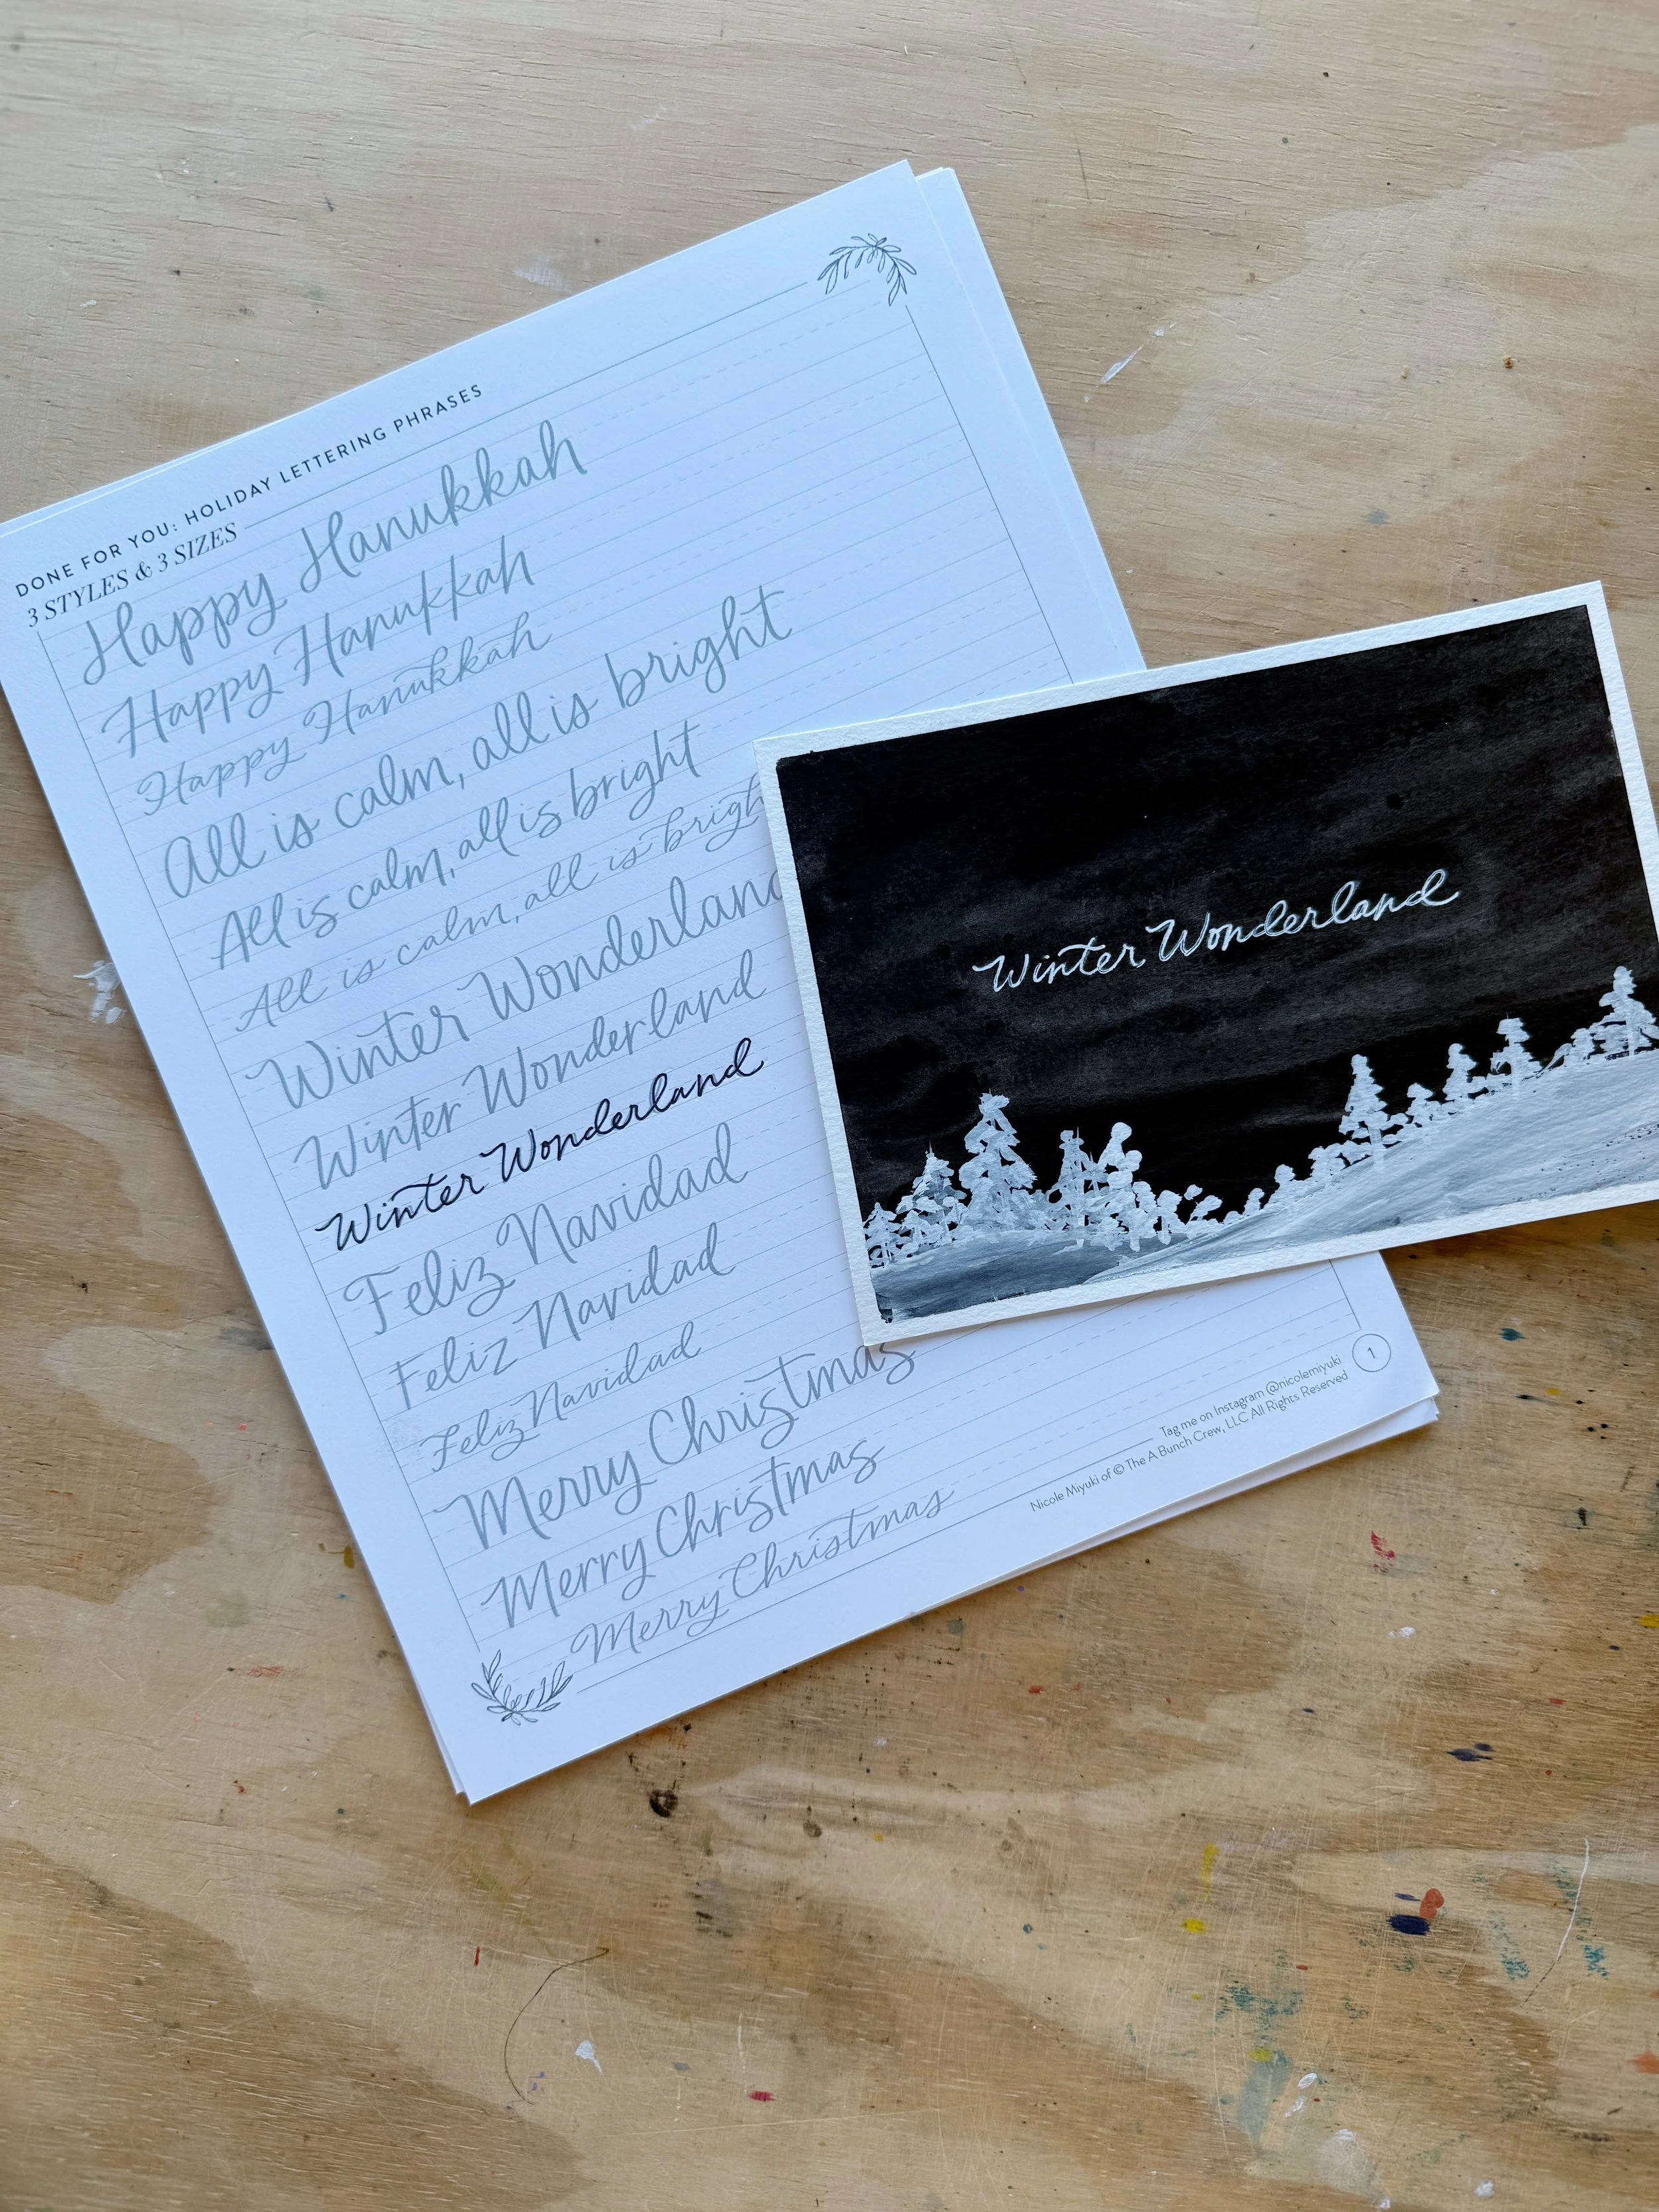 DONE FOR YOU: HOLIDAY LETTERING PHRASES
3 STYLES & 3 SIZES
Happy Hanukkah
Happy Hanukkah
Happy Hanukkah
All is calm, all is bright
All is calm, all is bright
All is calm, all is brigh
Winter Wonderland
Winter Wonderland
Winter Wonderland
Feliz Navidad
Feliz Navidad
Feliz Navidad
Merry Christmas
Merry Christmas
Merry Christmas
Tag me on Instagram @nicolemiyuki
Nicole Miyuki of © The A Bunch Crew, LLC All Rights Reserved
1
Winter Wonderland